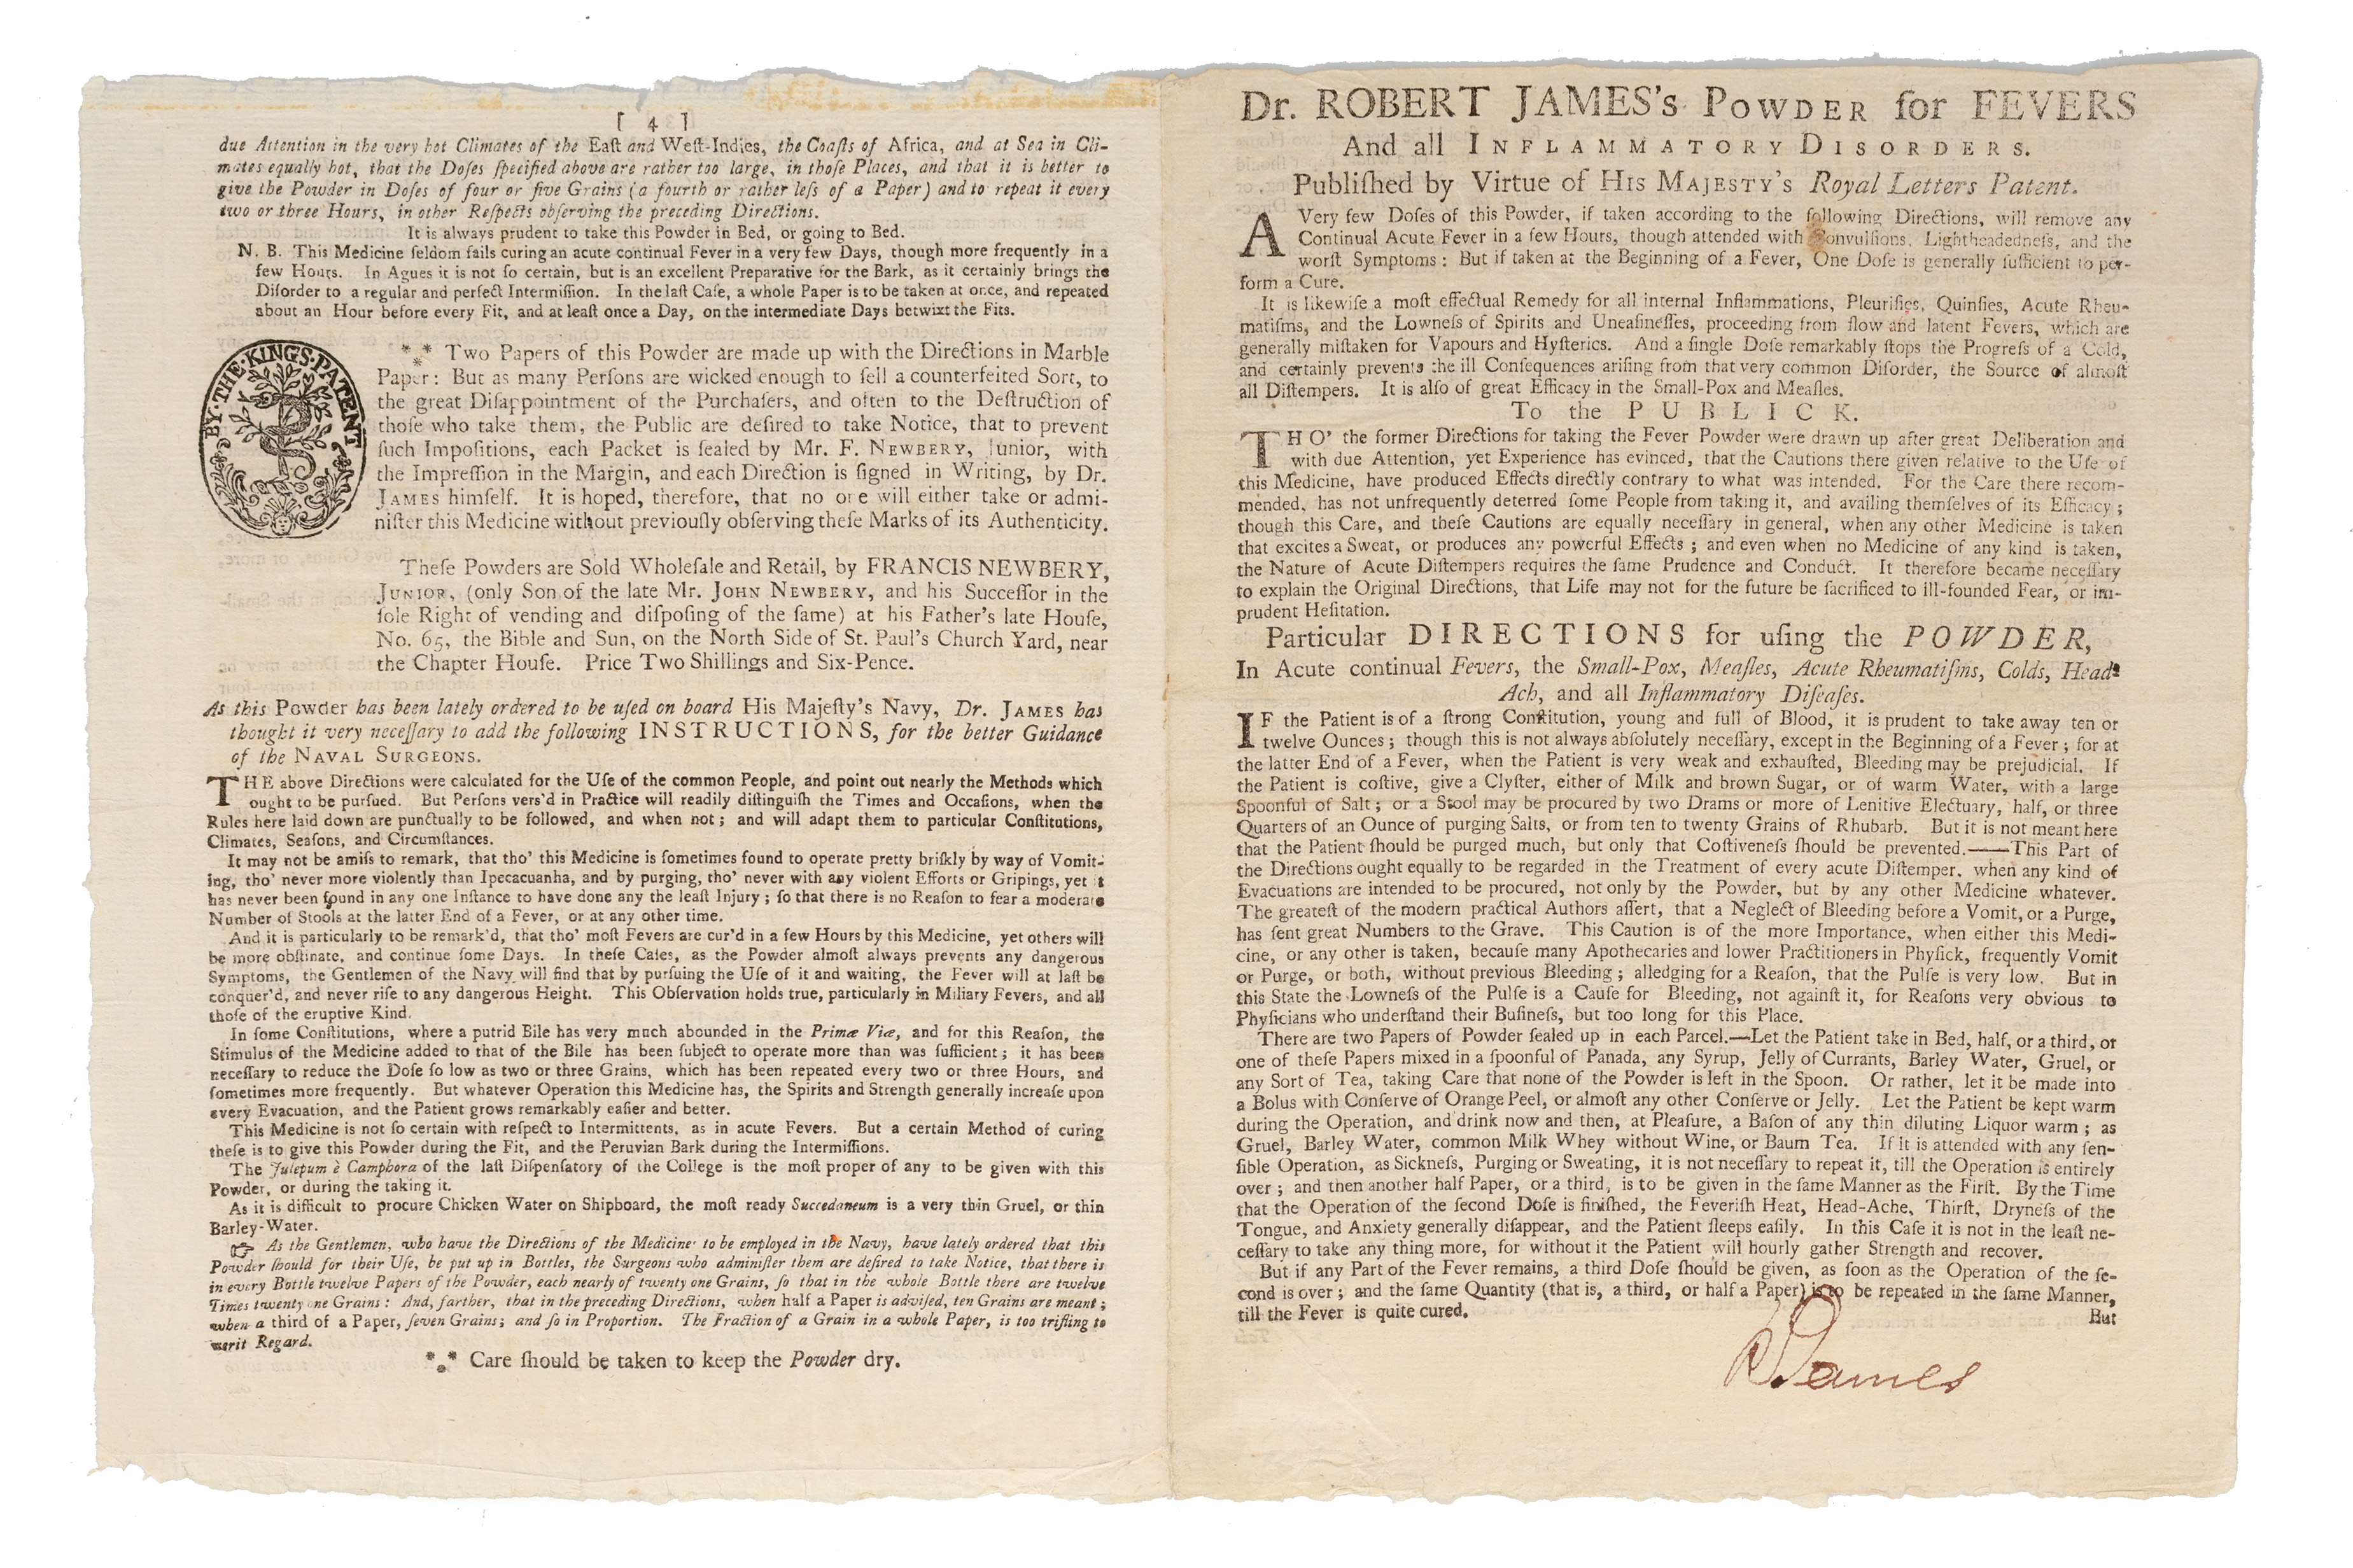 [ 4 ]
due Attention in the very hot Climates of the Eaſt and Weſt-Indies, the Coaſts of Africa, and at Sea in Cli-
mates equally hot, that the Doſes ſpecified above are rather too large, in thoſe Places, and that it is better to
give the Powder in Doſes of four or five Grains (a fourth or rather leſs of a Paper) and to repeat it every
two or three Hours, in other Reſpects obſerving the preceding Directions.
It is always prudent to take this Powder in Bed, or going to Bed.
N. B. This Medicine ſeldom fails curing an acute continual Fever in a very few Days, though more frequently in a
few Hours. In Agues it is not ſo certain, but is an excellent Preparative for the Bark, as it certainly brings the
Diſorder to a regular and perfect Intermiſſion. In the laſt Caſe, a whole Paper is to be taken at once, and repeated
about an Hour before every Fit, and at leaſt once a Day, on the intermediate Days betwixt the Fits.
BY·THE·KINGS·PATENT
*⁎* Two Papers of this Powder are made up with the Directions in Marble
Paper: But as many Perſons are wicked enough to ſell a counterfeited Sort, to
the great Diſappointment of the Purchaſers, and often to the Deſtruction of
thoſe who take them, the Public are deſired to take Notice, that to prevent
ſuch Impoſitions, each Packet is ſealed by Mr. F. NEWBERY, Junior, with
the Impreſſion in the Margin, and each Direction is ſigned in Writing, by Dr.
JAMES himſelf. It is hoped, therefore, that no one will either take or admi-
niſter this Medicine without previouſly obſerving theſe Marks of its Authenticity.
Theſe Powders are Sold Wholeſale and Retail, by FRANCIS NEWBERY,
JUNIOR, (only Son of the late Mr. JOHN NEWBERY, and his Succeſſor in the
ſole Right of vending and diſpoſing of the ſame) at his Father's late Houſe,
No. 65, the Bible and Sun, on the North Side of St. Paul's Church Yard, near
the Chapter Houſe. Price Two Shillings and Six-Pence.
As this Powder has been lately ordered to be uſed on board His Majeſty's Navy, Dr. JAMES has
thought it very neceſſary to add the following INSTRUCTIONS, for the better Guidance
of the NAVAL SURGEONS.
THE above Directions were calculated for the Uſe of the common People, and point out nearly the Methods which
ought to be purſued. But Perſons vers'd in Practice will readily diſtinguiſh the Times and Occaſions, when the
Rules here laid down are punctually to be followed, and when not; and will adapt them to particular Conſtitutions,
Climates, Seaſons, and Circumſtances.
It may not be amiſs to remark, that tho' this Medicine is ſometimes found to operate pretty briſkly by way of Vomit-
ing, tho' never more violently than Ipecacuanha, and by purging, tho' never with any violent Efforts or Gripings, yet it
has never been found in any one Inſtance to have done any the leaſt Injury; ſo that there is no Reaſon to fear a moderate
Number of Stools at the latter End of a Fever, or at any other time.
And it is particularly to be remark'd, that tho' moſt Fevers are cur'd in a few Hours by this Medicine, yet others will
be more obſtinate, and continue ſome Days. In theſe Caſes, as the Powder almoſt always prevents any dangerous
Symptoms, the Gentlemen of the Navy will find that by purſuing the Uſe of it and waiting, the Fever will at laſt be
conquer'd, and never riſe to any dangerous Height. This Obſervation holds true, particularly in Miliary Fevers, and all
thoſe of the eruptive Kind.
In ſome Conſtitutions, where a putrid Bile has very much abounded in the Primæ Viæ, and for this Reaſon, the
Stimulus of the Medicine added to that of the Bile has been ſubject to operate more than was ſufficient; it has been
neceſſary to reduce the Doſe ſo low as two or three Grains, which has been repeated every two or three Hours, and
ſometimes more frequently. But whatever Operation this Medicine has, the Spirits and Strength generally increaſe upon
every Evacuation, and the Patient grows remarkably eaſier and better.
This Medicine is not ſo certain with reſpect to Intermittents, as in acute Fevers. But a certain Method of curing
theſe is to give this Powder during the Fit, and the Peruvian Bark during the Intermiſſions.
The Julepum è Camphora of the laſt Diſpenſatory of the College is the moſt proper of any to be given with this
Powder, or during the taking it.
As it is difficult to procure Chicken Water on Shipboard, the moſt ready Succedaneum is a very thin Gruel, or thin
Barley-Water.
☞ As the Gentlemen, who have the Directions of the Medicine to be employed in the Navy, have lately ordered that this
Powder ſhould for their Uſe, be put up in Bottles, the Surgeons who adminiſter them are deſired to take Notice, that there is
in every Bottle twelve Papers of the Powder, each nearly of twenty one Grains, ſo that in the whole Bottle there are twelve
Times twenty one Grains: And, farther, that in the preceding Directions, when half a Paper is adviſed, ten Grains are meant;
when a third of a Paper, ſeven Grains; and ſo in Proportion. The Fraction of a Grain in a whole Paper, is too trifling to
merit Regard.
*⁎* Care ſhould be taken to keep the Powder dry.
Dr. ROBERT JAMES's POWDER for FEVERS
And all INFLAMMATORY DISORDERS.
Publiſhed by Virtue of HIS MAJESTY's Royal Letters Patent.
A Very few Doſes of this Powder, if taken according to the following Directions, will remove any
Continual Acute Fever in a few Hours, though attended with Convulſions, Lightheadedneſs, and the
worſt Symptoms: But if taken at the Beginning of a Fever, One Doſe is generally ſufficient to per-
form a Cure.
It is likewiſe a moſt effectual Remedy for all internal Inflammations, Pleuriſies, Quinſies, Acute Rheu-
matiſms, and the Lowneſs of Spirits and Uneaſineſſes, proceeding from ſlow and latent Fevers, which are
generally miſtaken for Vapours and Hyſterics. And a ſingle Doſe remarkably ſtops the Progreſs of a Cold,
and certainly prevents the ill Conſequences ariſing from that very common Diſorder, the Source of almoſt
all Diſtempers. It is alſo of great Efficacy in the Small-Pox and Meaſles.
To the PUBLICK.
THO' the former Directions for taking the Fever Powder were drawn up after great Deliberation and
with due Attention, yet Experience has evinced, that the Cautions there given relative to the Uſe of
this Medicine, have produced Effects directly contrary to what was intended. For the Care there recom-
mended, has not unfrequently deterred ſome People from taking it, and availing themſelves of its Efficacy;
though this Care, and theſe Cautions are equally neceſſary in general, when any other Medicine is taken
that excites a Sweat, or produces any powerful Effects; and even when no Medicine of any kind is taken,
the Nature of Acute Diſtempers requires the ſame Prudence and Conduct. It therefore became neceſſary
to explain the Original Directions, that Life may not for the future be ſacrificed to ill-founded Fear, or im-
prudent Heſitation.
Particular DIRECTIONS for uſing the POWDER,
In Acute continual Fevers, the Small-Pox, Meaſles, Acute Rheumatiſms, Colds, Head-
Ach, and all Inflammatory Diſeaſes.
IF the Patient is of a ſtrong Conſtitution, young and full of Blood, it is prudent to take away ten or
twelve Ounces; though this is not always abſolutely neceſſary, except in the Beginning of a Fever; for at
the latter End of a Fever, when the Patient is very weak and exhauſted, Bleeding may be prejudicial. If
the Patient is coſtive, give a Clyſter, either of Milk and brown Sugar, or of warm Water, with a large
Spoonful of Salt; or a Stool may be procured by two Drams or more of Lenitive Electuary, half, or three
Quarters of an Ounce of purging Salts, or from ten to twenty Grains of Rhubarb. But it is not meant here
that the Patient ſhould be purged much, but only that Coſtiveneſs ſhould be prevented.——This Part of
the Directions ought equally to be regarded in the Treatment of every acute Diſtemper, when any kind of
Evacuations are intended to be procured, not only by the Powder, but by any other Medicine whatever.
The greateſt of the modern practical Authors aſſert, that a Neglect of Bleeding before a Vomit, or a Purge,
has ſent great Numbers to the Grave. This Caution is of the more Importance, when either this Medi-
cine, or any other is taken, becauſe many Apothecaries and lower Practitioners in Phyſick, frequently Vomit
or Purge, or both, without previous Bleeding; alledging for a Reaſon, that the Pulſe is very low. But in
this State the Lowneſs of the Pulſe is a Cauſe for Bleeding, not againſt it, for Reaſons very obvious to
Phyſicians who underſtand their Buſineſs, but too long for this Place.
There are two Papers of Powder ſealed up in each Parcel.—Let the Patient take in Bed, half, or a third, or
one of theſe Papers mixed in a ſpoonful of Panada, any Syrup, Jelly of Currants, Barley Water, Gruel, or
any Sort of Tea, taking Care that none of the Powder is left in the Spoon. Or rather, let it be made into
a Bolus with Conſerve of Orange Peel, or almoſt any other Conſerve or Jelly. Let the Patient be kept warm
during the Operation, and drink now and then, at Pleaſure, a Baſon of any thin diluting Liquor warm; as
Gruel, Barley Water, common Milk Whey without Wine, or Baum Tea. If it is attended with any ſen-
ſible Operation, as Sickneſs, Purging or Sweating, it is not neceſſary to repeat it, till the Operation is entirely
over; and then another half Paper, or a third, is to be given in the ſame Manner as the Firſt. By the Time
that the Operation of the ſecond Doſe is finiſhed, the Feveriſh Heat, Head-Ache, Thirſt, Dryneſs of the
Tongue, and Anxiety generally diſappear, and the Patient ſleeps eaſily. In this Caſe it is not in the leaſt ne-
ceſſary to take any thing more, for without it the Patient will hourly gather Strength and recover.
But if any Part of the Fever remains, a third Doſe ſhould be given, as ſoon as the Operation of the ſe-
cond is over; and the ſame Quantity (that is, a third, or half a Paper) is to be repeated in the ſame Manner,
till the Fever is quite cured.
But
R James